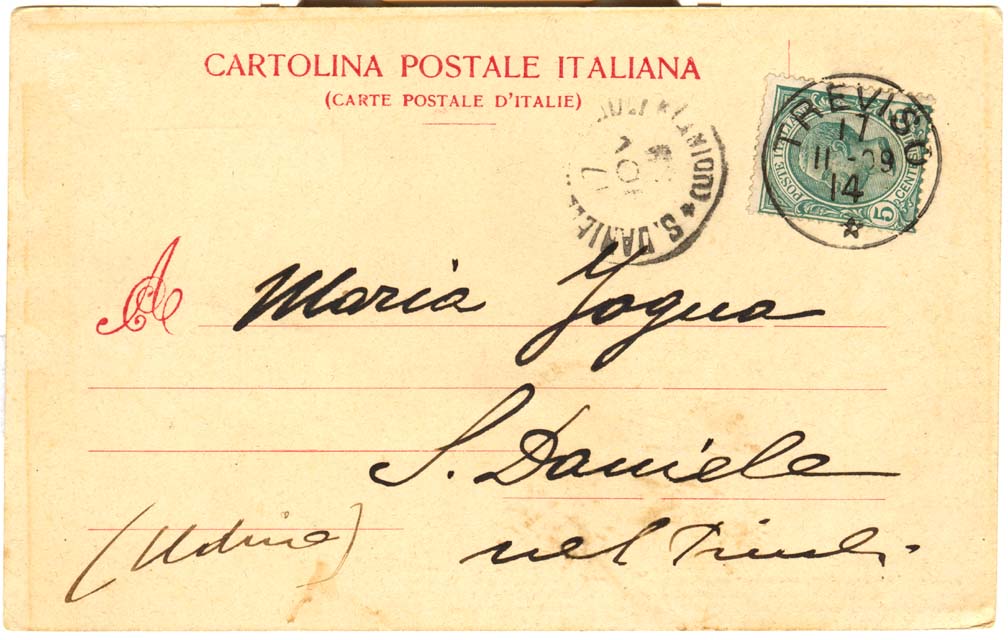 CARTOLINA POSTALE ITALIANA
(CARTE POSTALE D'ITALIE)
TREVISO
17
11-09
14
POSTE ITALIANE
5 CENT
S. DANIELE (UDINE)
A Maria Jogna
S. Daniele
nel Friuli
(Udine)